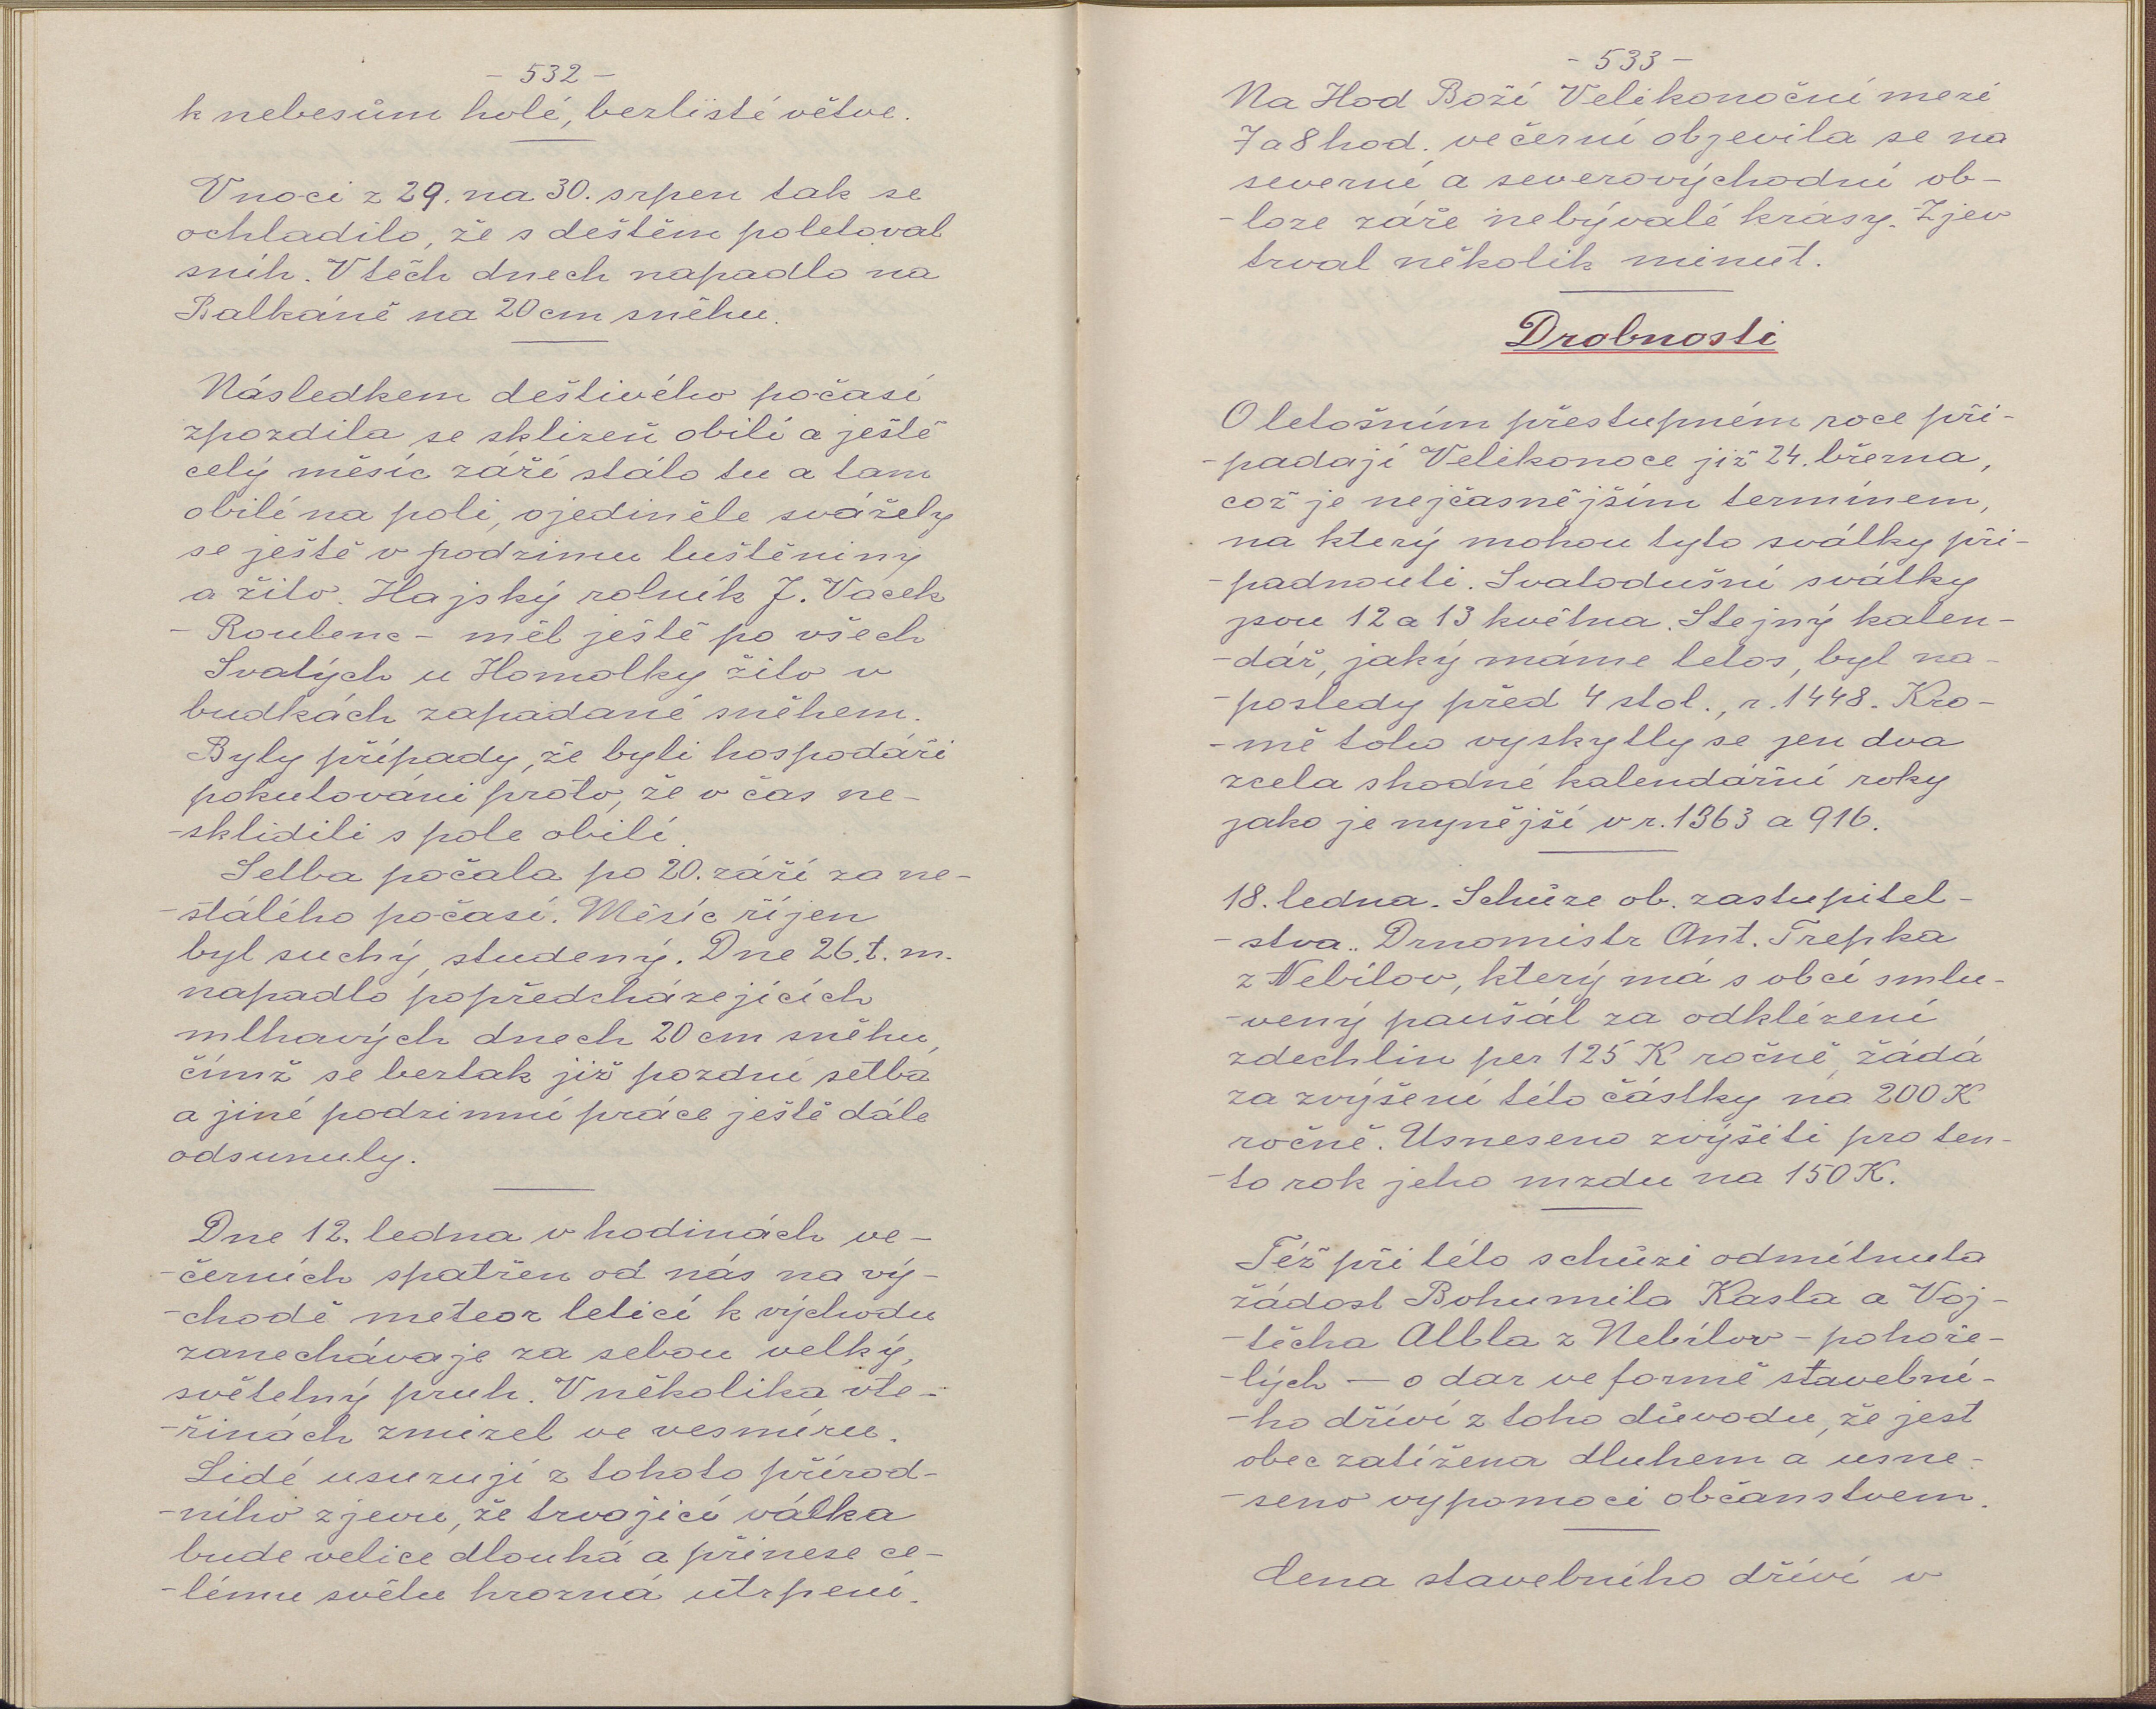 - 532 -
k nebesům holé, bezlisté větve.
V noci z 29. na 30. srpen tak se
ochladilo, že s deštěm poletoval
sníh. V těch dnech napadlo na
Balkáně na 20 cm sněhu.
Následkem deštivého počasí
zpozdila se sklizeň obilí a ještě
celý měsíc září stálo tu a tam
obilí na poli, ojediněle svážely
se ještě v podzimu luštěniny
a žito. Hajský rolník J. Vacek
- Roubenc - měl ještě po všech
Svatých u Homolky žito v
budkách zapadané sněhem.
Byly případy, že byli hospodáři
pokutováni proto, že v čas ne-
-sklidili s pole obilí.
Setba počala po 20. září za ne-
-stálého počasí. Měsíc říjen
byl suchý, studený. Dne 26. t. m.
napadlo popředcházejících
mlhavých dnech 20 cm sněhu,
čímž se beztak již pozdní setba
a jiné podzimní práce ještě dále
odsunuly.
Dne 12. ledna v hodinách ve-
-černích spatřen od nás na vý-
-chodě meteor letící k východu
zanechávaje za sebou velký,
světelný pruh. V několika vte-
-řinách zmizel ve vesmíru.
Lidé usuzují z tohoto přírod-
-ního zjevu, že trvající válka
bude velice dlouhá a přinese ce-
-lému světu hrozná utrpení.
- 533 -
Na Hod Boží Velikonoční mezi
7 a 8 hod. večerní objevila se na
severní a severovýchodní ob-
-loze záře nebývalé krásy. Zjev
trval několik minut.
Drobnosti
O letošním přestupném roce při-
-padají Velikonoce již 24. března,
což je nejčasnějším termínem,
na který mohou tyto svátky při-
-padnouti. Svatodušní svátky
jsou 12 a 13 května. Stejný kalen-
-dář, jaký máme letos, byl na-
-posledy před 4 stol., r. 1448. Kro-
-mě toho vyskytly se jen dva
zcela shodné kalendářní roky
jako je nynější v r. 1363 a 916.
18. ledna. Schůze ob. zastupitel-
-stva.. Drnomistr Ant. Trepka
z Nebílov, který má s obcí smlu-
-vený paušál za odklízení
zdechlin per 125 K ročně, žádá
za zvýšení této částky na 200 K
ročně. Usneseno zvýšiti pro ten-
-to rok jeho mzdu na 150 K.
Též při této schůzi odmítnuta
žádost Bohumila Kasla a Voj-
-těcha Albla z Nebílov - pohoře-
-lých — o dar ve formě stavební-
-ho dříví z toho důvodu, že jest
obec zatížena dluhem a usne-
-seno vypomoci občanstvem.
Cena stavebního dříví v